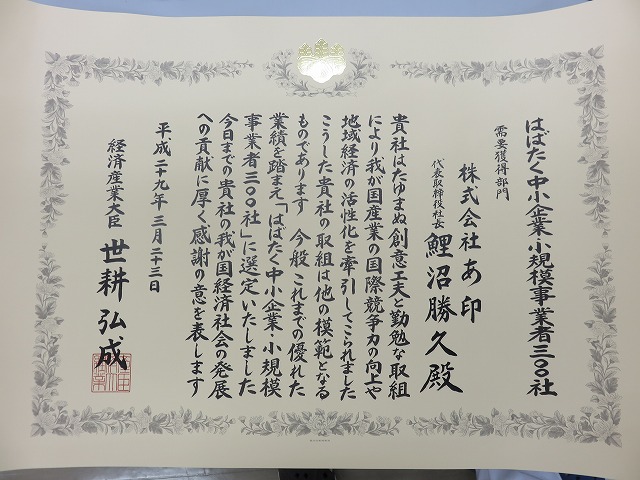 はばたく中小企業・小規模事業者三〇〇社
需要獲得部門
株式会社あ印
代表取締役社長 鯉沼勝久殿
貴社はたゆまぬ創意工夫と勤勉な取組
により我が国産業の国際競争力の向上や
地域経済の活性化を牽引してこられました
こうした貴社の取組は他の模範となる
ものであります 今般これまでの優れた
業績を踏まえ「はばたく中小企業・小規模
事業者三〇〇社」に選定いたしました
今日までの貴社の我が国経済社会の発展
への貢献に厚く感謝の意を表します
平成二十九年三月二十三日
経済産業大臣 世耕弘成